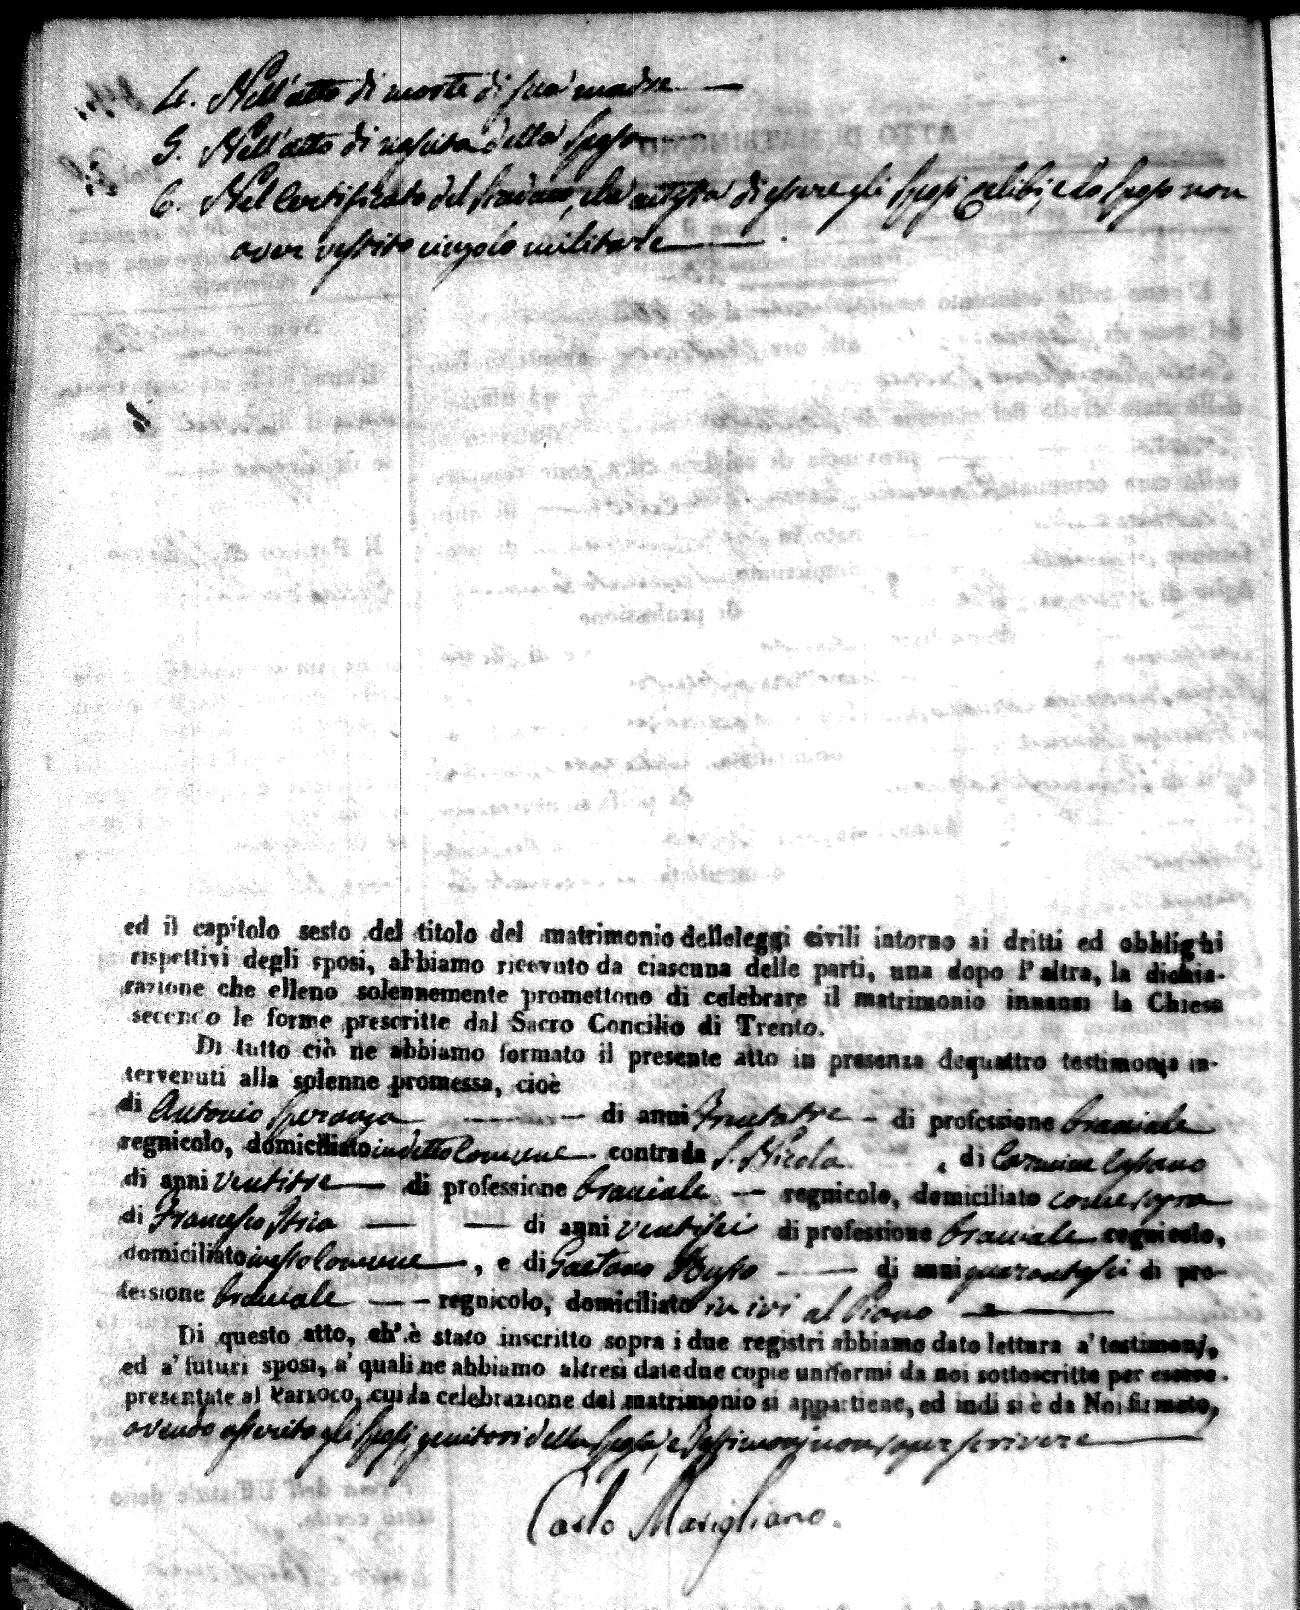 4. Nell'atto di morte di sua madre
5. Nell'atto di nascita della Sposa
6. Nel Certificato del Sindaco, che attesta di essere gli Sposi Celibi, e lo Sposo non
aver vestito cingolo militare
ed il capitolo sesto del titolo del matrimonio delleleggi civili intorno ai dritti ed obblighi
rispettivi degli sposi, abbiamo ricevuto da ciascuna delle parti, una dopo l'altra, la dichia-
razione che elleno solennemente promettono di celebrare il matrimonio innanzi la Chiesa
secondo le forme prescritte dal Sacro Concilio di Trento.
Di tutto ciò ne abbiamo formato il presente atto in presenza dequattro testimonja in-
tervenuti alla solenne promessa, cioè
di Antonio Speranza di anni trentatre di professione bracciale
regnicolo, domiciliato in detto Comune contrada S. Nicola, di Carmine
di anni ventitre di professione bracciale regnicolo, domiciliato come sopra
di Francesco di anni ventisei di professione bracciale regnicolo,
domiciliato in esso Comune, e di Gaetano Russo di anni quarantasei di pro-
fessione bracciale regnicolo, domiciliato in ivi al Piano
Di questo atto, ch'è stato inscritto sopra i due registri abbiamo dato lettura a' testimonj,
ed a' futuri sposi, a' quali ne abbiamo altresì date due copie uniformi da noi sottoscritte per essere
presentate al Parroco, cui la celebrazione del matrimonio si appartiene, ed indi si è da Noi firmato,
avendo asserito gli Sposi, genitori della Sposa, e Testimonj non saper scrivere
Carlo Marigliano.